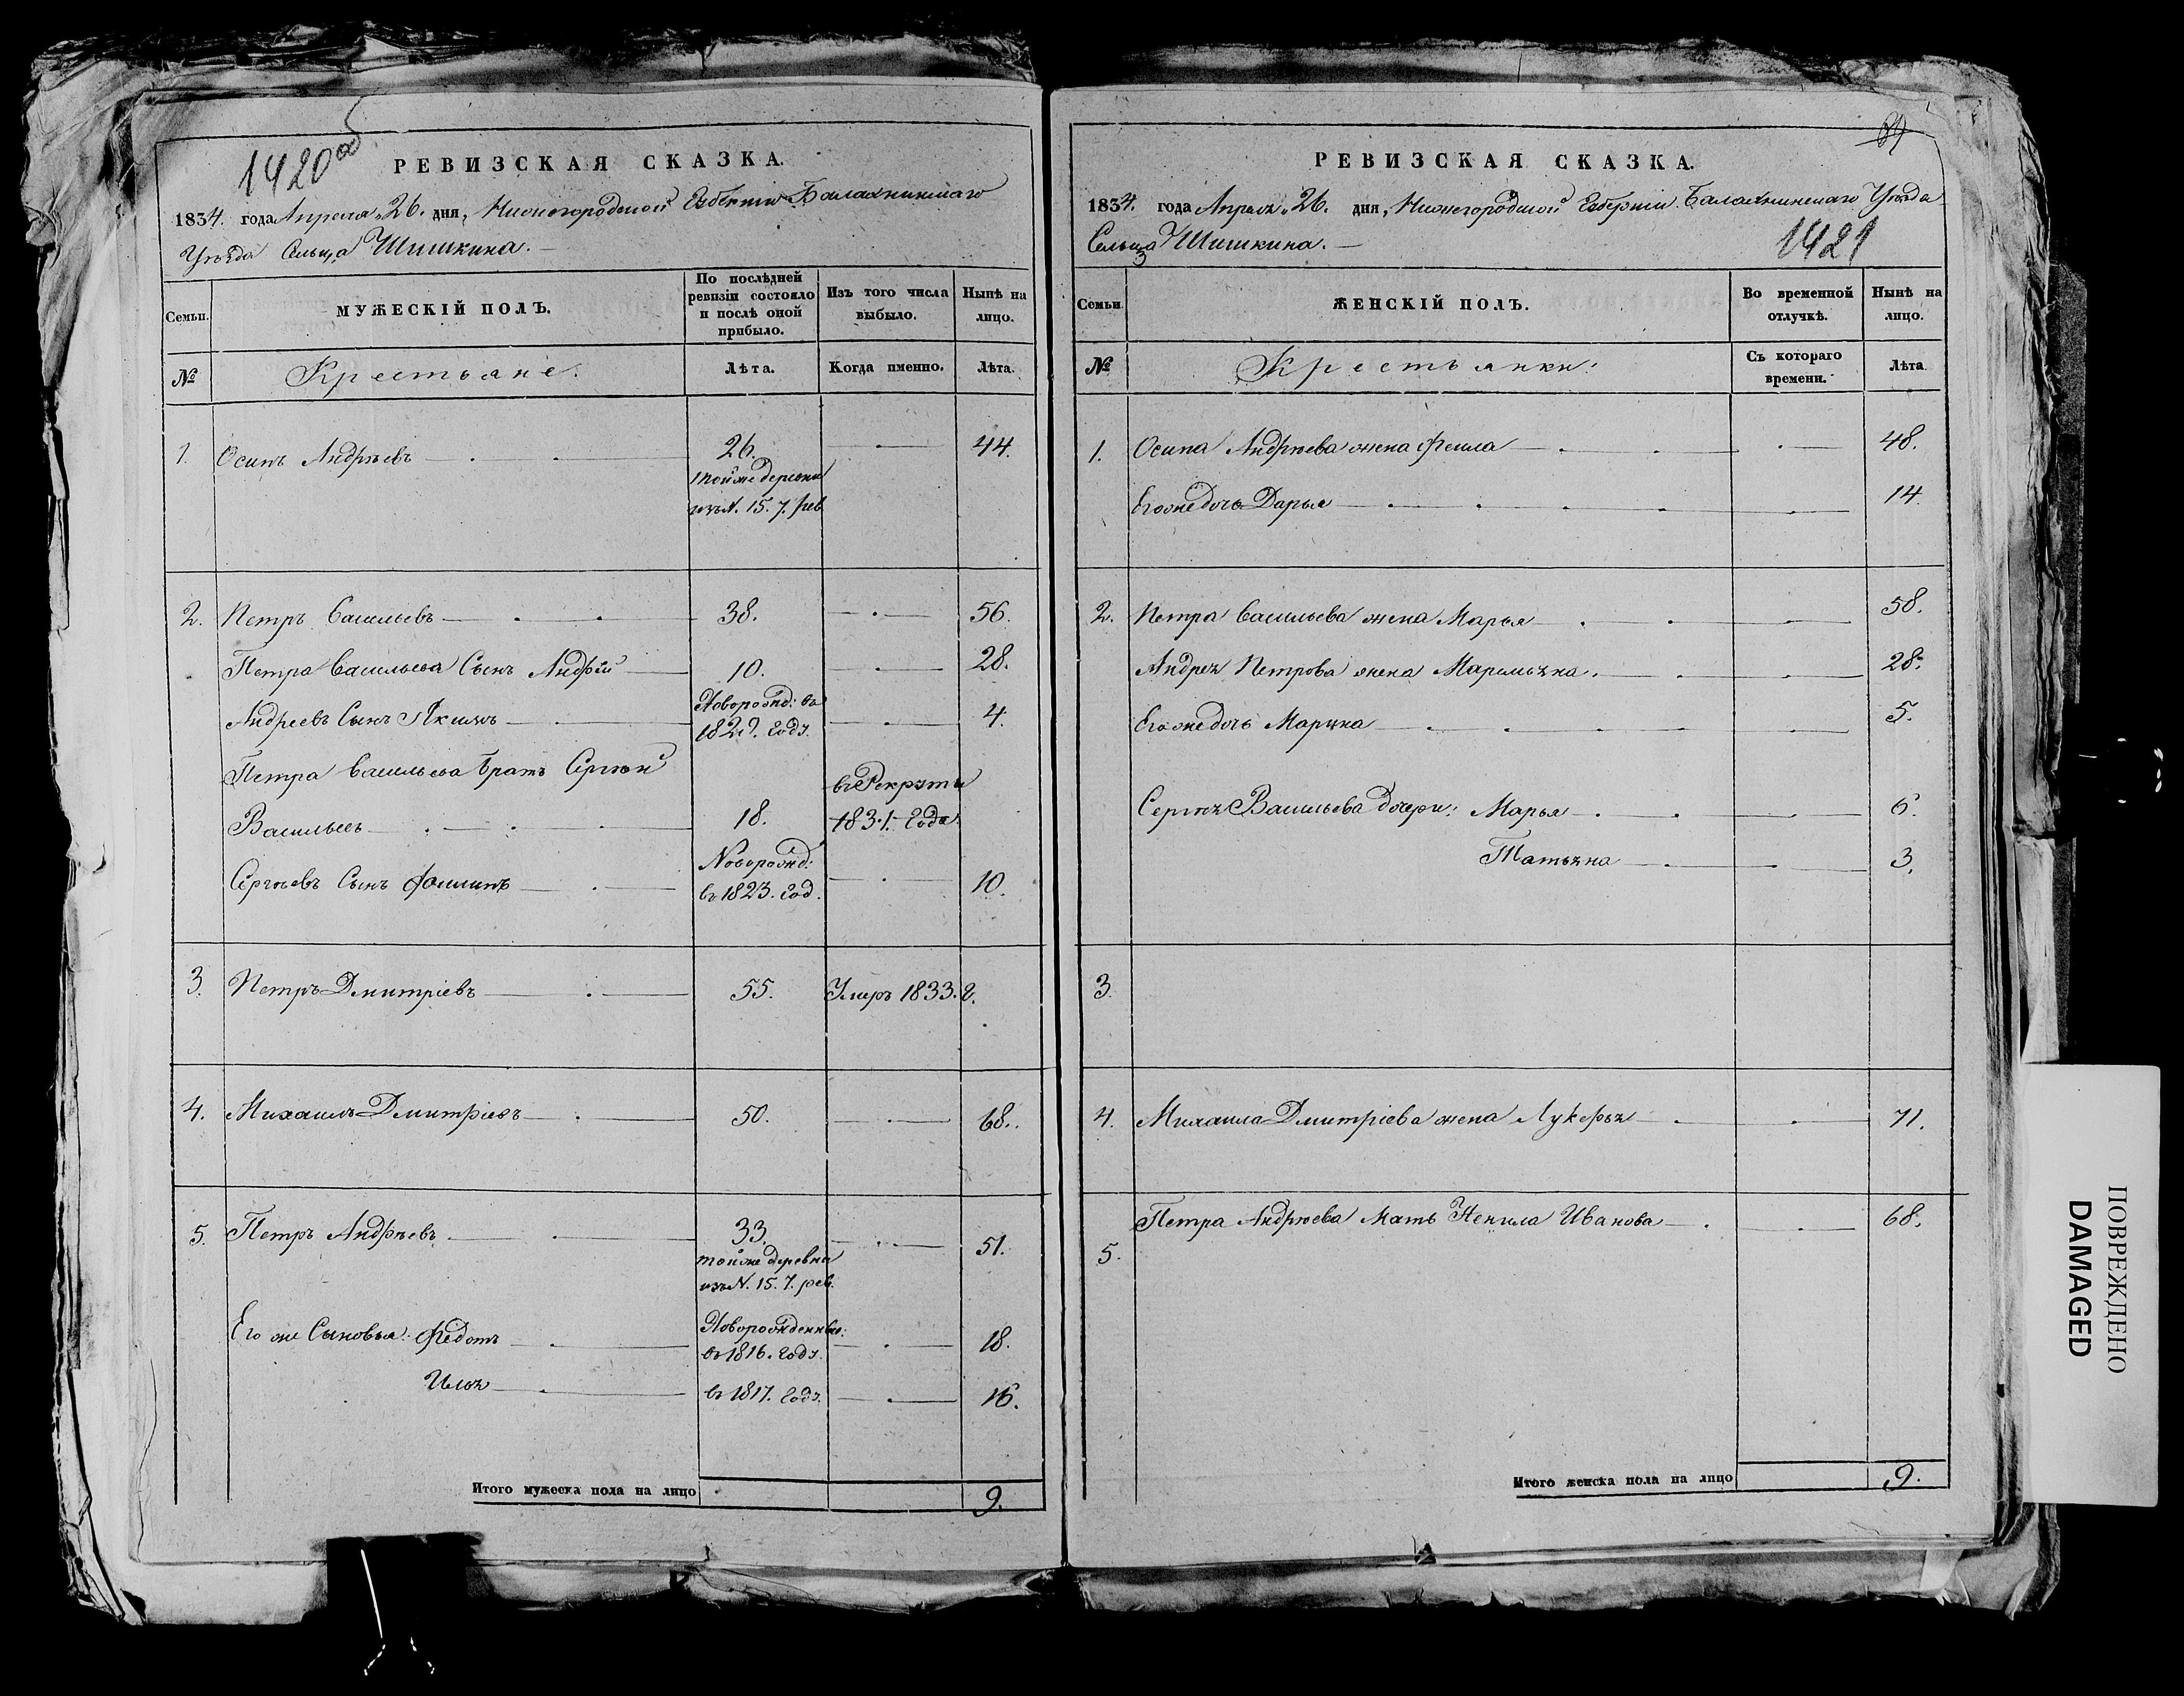 1420 об
РЕВИЗСКАЯ СКАЗКА.
1834. года Апреля 26. дня, Нижегородской Губерніи Балахнинскаго
Уѣзда Сельца Шишкина.
Семьи.
МУЖЕСКІЙ ПОЛЪ.
По послѣдней ревизіи состояло и послѣ оной прибыло.
Изъ того числа выбыло.
Нынѣ на лицо.
№
Крестьяне.
Лѣта.
Когда именно.
Лѣта.
1. Осипъ Андрѣевъ 26. 44.
тойже деревни
изъ N. 15. 7. рев.
2. Петръ Васильевъ 38. 56.
Петра Васильева Сынъ Андрѣй 10. 28.
Новорожд: въ
Андреевъ Сынъ Якимъ 1829. году. 4.
Петра Васильева братъ Сергѣй
въ Рекруты
Васильевъ 18. 1831. года.
Новорожд:
Сергѣевъ Сынъ въ 1823. год. 10.
3. Петръ Дмитріевъ 55. Умеръ 1833. г.
4. Михаилъ Дмитріевъ 50. 68.
5. Петръ Андрѣевъ 33. 51.
тойже деревни
изъ N. 15. 7. рев.
Новорожденные:
Его же Сыновья: Федотъ въ 1816. году. 18.
Илья въ 1817. году. 16.
Итого мужеска пола на лицо 9.
РЕВИЗСКАЯ СКАЗКА.
1834. года Апреля 26. дня, Нижегородской Губерніи Балахнинскаго Уѣзда
Сельца Шишкина.
1421
Семьи
ЖЕНСКІЙ ПОЛЪ.
Во временной отлучкѣ.
Нынѣ на лицо.
№
Крестьянки:
Съ котораго времени.
Лѣта
1. Осипа Андрѣева жена 48.
Егоже дочь Дарья 14
2. Петра Васильева жена Марья 58.
Андрея Петрова жена Маремьяна. 28.
Егоже дочь 5.
Сергѣя Васильева дочери: Марья 6.
Татьяна 3.
3.
4. Михаила Дмитріева жена Лукерья 71.
5. Петра Андрѣева Мать Ненила Иванова 68.
Итого женска пола на лицо 9.
ПОВРЕЖДЕНО
DAMAGED